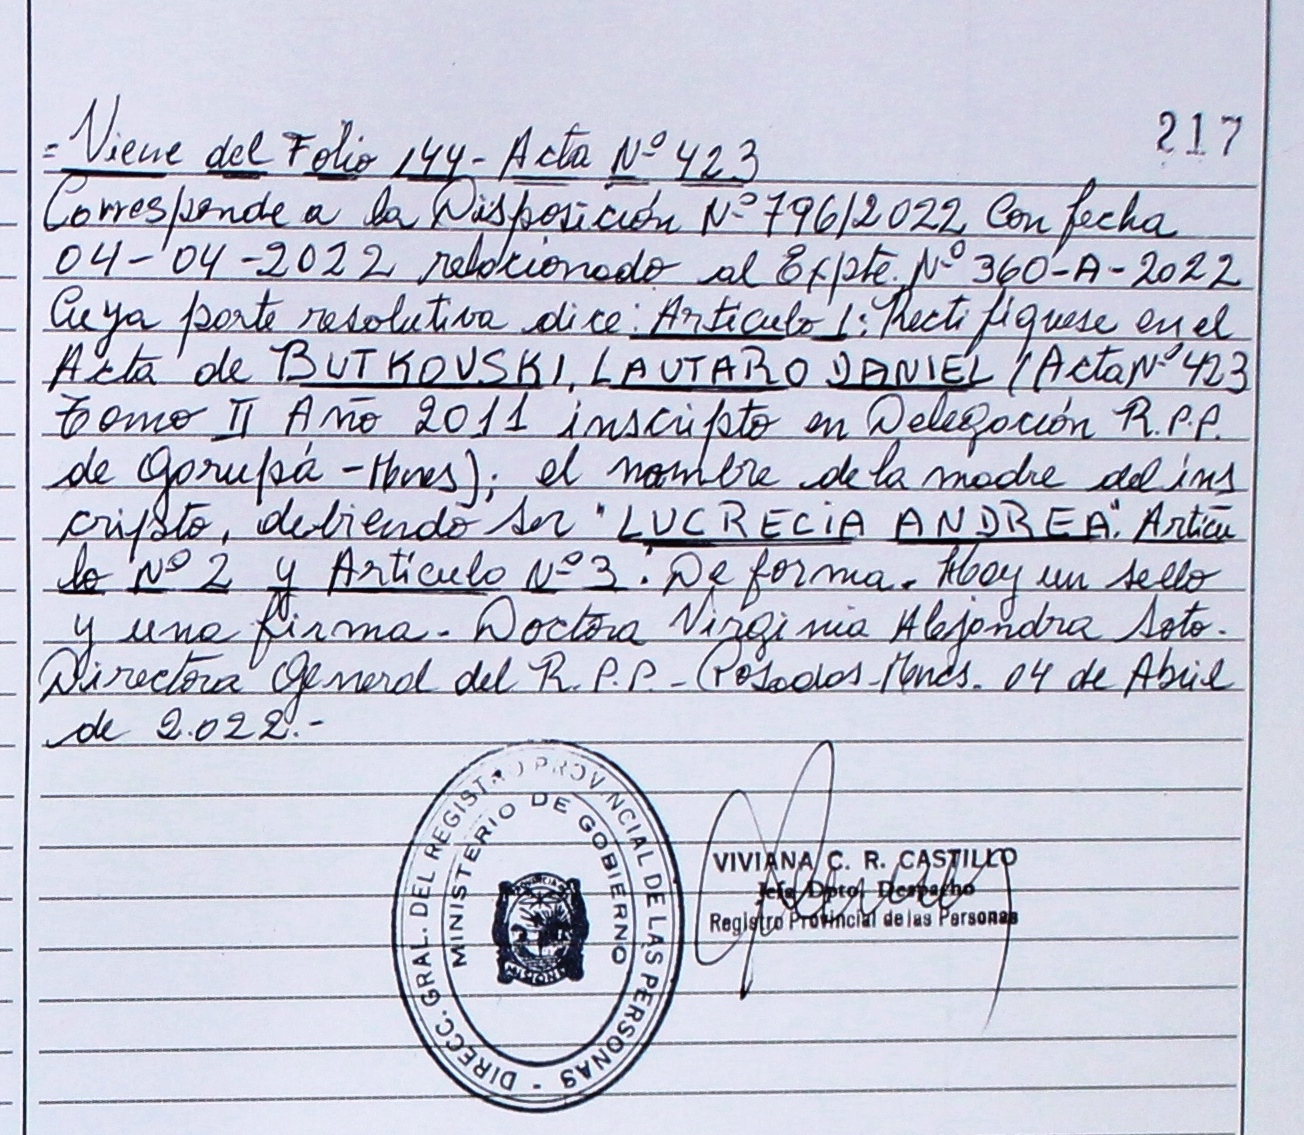 217
= Viene del Folio 144 - Acta Nº 423
Corresponde a la Disposición Nº 796/2022 Con fecha
04-04-2022 relacionado al Expte. Nº 360-A-2022
Cuya parte resolutiva dice: Artículo 1: Rectifíquese en el
Acta de BUTKOVSKI, LAUTARO DANIEL (Acta Nº 423
Tomo II Año 2011 inscripto en Delegación R.P.P.
de Garupá - Mnes); el nombre de la madre del ins
cripto, debiendo ser "LUCRECIA ANDREA". Artícu
lo Nº 2 y Artículo Nº 3. De forma. Hay un sello
y una firma. Doctora Virginia Alejandra Soto.
Directora General del R.P.P. - Posadas - Mnes. 04 de Abril
de 2.022.-
DIRECC. GRAL. DEL REGISTRO PROVINCIAL DE LAS PERSONAS -
MINISTERIO DE GOBIERNO
VIVIANA C. R. CASTILLO
Jefa Dpto. Despacho
Registro Provincial de las Personas